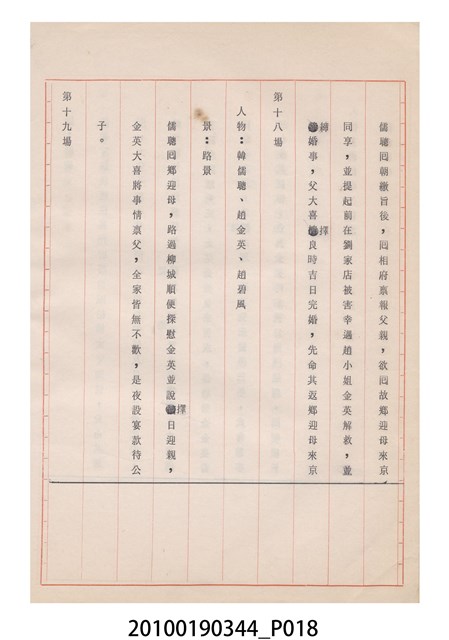 儒聰囘朝繳旨後，囘相府禀報父親，欲囘故鄉迎母來京
同享，並提起前在劉家店被害幸遇趙小姐金英解救，並
締婚事，父大喜擇良時吉日完婚，先命其返鄉迎母來京
第十八場
人物：韓儒聰、趙金英、趙碧風
景：路景
儒聰囘鄉迎母，路過柳城順便探慰金英並說擇日迎親，
金英大喜將事情禀父，全家皆無不歡，是夜設宴款待公
子。
第十九場
20100190344_P018